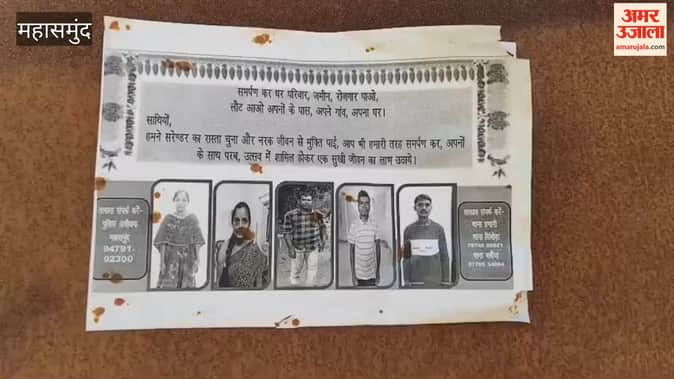 महासमुंद
अमर
उजाला
amarujala.com
समर्पण कर घर परिवार, जमीन, रोजगार पाओ,
लौट आओ अपनों के पास, अपने गांव, अपना घर।
साथियों,
हमने सरेण्डर का रास्ता चुना और नरक जीवन से मुक्ति पाई, आप भी हमारी तरह समर्पण कर, अपनों
के साथ परब, उत्सव में शामिल होकर एक सुखी जीवन का लाभ उठाये।
संपर्क करें-
पुलिस अधीक्षक
महासमुंद
94791-
92300
संपर्क करें-
थाना प्रभारी
थाना
थाना